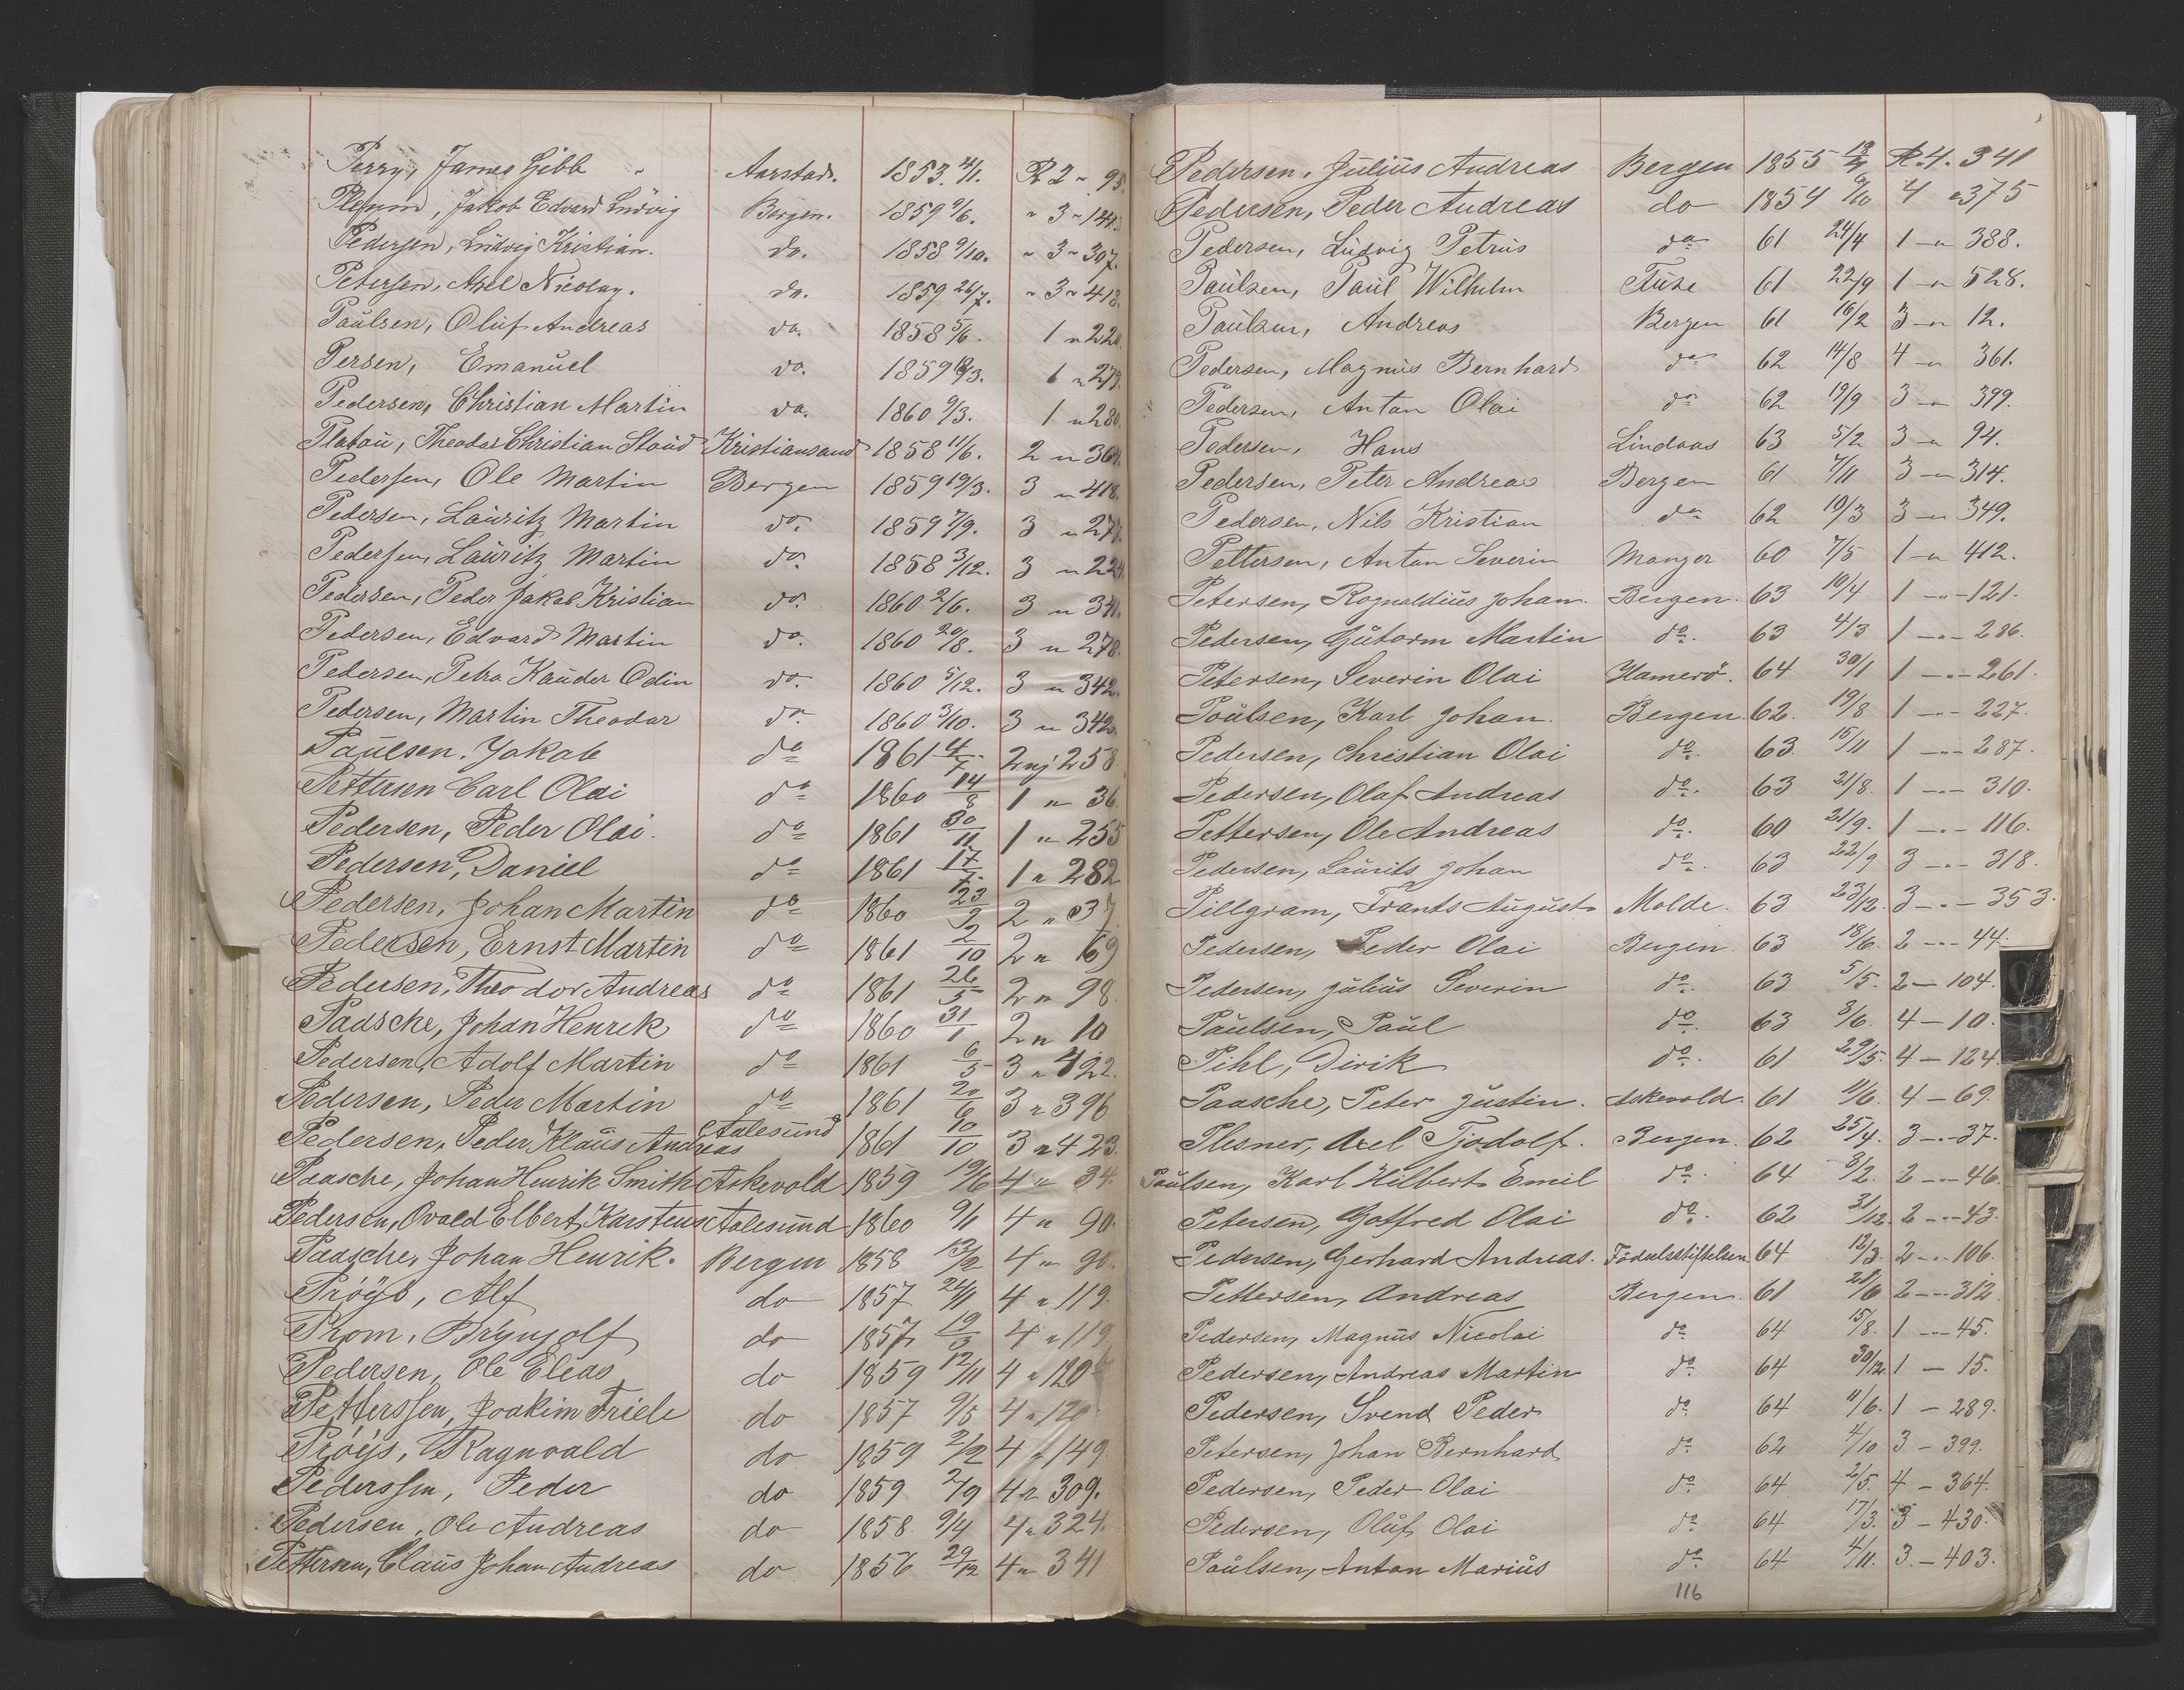 Perry, James Gibb " Aarstad. 1853. 4/1. R 2 " 95.
Jakob Edvard Ludvig Bergen. 1859 9/6. " 3 " 141.
Pedersen, Ludvig Kristian. do. 1858 9/10. " 3 " 307.
Petersen, Axel Nicolay. do. 1859 26/7. " 3 " 418.
Paulsen, Oluf Andreas do. 1858 5/6. 1 " 220.
Persen, Emanuel do. 1859 18/3. 1 " 279.
Pedersen, Christian Martin do. 1860 9/3. 1 " 280.
Platou, Theodor Christian Stoud Kristiansand 1858 11/6. 2 " 364.
Pedersen, Ole Martin Bergen 1859 19/3. 3 " 418.
Pedersen, Lauritz Martin do. 1859 7/9. 3 " 277.
Pedersen, Lauritz Martin do. 1858 3/12. 3 " 224.
Pedersen, Peder Jakob Kristian do. 1860 2/6. 3 " 341.
Pedersen, Edvard Martin do. 1860 20/8. 3 " 278.
Pedersen, Petra Kauder Odin do. 1860 5/12. 3 " 342.
Pedersen, Martin Theodor do. 1860 3/10. 3 " 342.
Paulsen. Jakob do 1861 4/7. 2 258
Pettersen Carl Olai do 1860 14/8 1 " 36.
Pedersen, Peder Olai. do 1861 30/11 1 " 255
Pedersen, Daniel do 1861 1 " 282
Pedersen, Johan Martin do 1860 23/9 2 " 37
Pedersen, Ernst Martin do 1861 2/10 2 " 69
Pedersen, Theodor Andreas do 1861 26/5 2 " 98.
Paasche, Johan Henrik do 1860 31/1 2 " 10
Pedersen, Adolf Martin do 1861 6/5 3 " 422.
Pedersen, Peder Martin do 1861 20/6 3 " 396
Pedersen, Peder Klaus Andreas Aalesund 1861 10/10 3 " 423.
Paasche, Johan Henrik Smith Askevold 1859 19/6 4 " 34.
Pedersen, Ovald Elbert Karstens Aalesund 1860 9/1 4 " 90.
Paasche, Johan Henrik. Bergen 1858 13/2 4 " 90.
Prøys, Alf do 1857 24/11 4 " 119.
Prom, Brynjolf do 1857 19/3 4 " 119
Pedersen, Ole Elias do 1859 12/11 4 " 120
Petterssen, Joakim Friele do 1857 9/5 4 " 120
Prøys, Ragnvald do 1859 2/2 4 " 149.
Pederssen, Peder do 1859 2/9 4 " 309.
Pedersen, Ole Andreas do 1858. 9/4 4 " 324.
Pettersen, Claus Johan Andreas do 1856 29/12 4 " 341
Pedersen, Julius Andreas Bergen 1855 R. 4. 341
Pedersen, Peder Andreas do 1854 9/10 4 " 375
Pedersen, Ludvig Petrus do 61 24/4 1 " 388.
Paulsen, Paul Wilhelm Fuse 61 22/9 1 " 528.
Paulsen, Andreas Bergen 61 16/2 3 " 12.
Pedersen, Magnus Bernhard do 62 14/8 4 " 361.
Pedersen, Anton Olai do 62 19/9 3 " 399.
Pedersen, Hans Lindaas 63 5/2 3 " 94.
Pedersen, Peter Andreas Bergen 61 7/11 3 " 314.
Pedersen, Nils Kristian do 62 10/3 3 " 349.
Pettersen, Anton Severin Manger 60 7/5 1 " 412.
Petersen, Rognaldius Johan. Bergen. 63 10/4 1 " 121.
Pedersen, Gutorm Martin do. 63 4/3 1 " 286.
Petersen, Severin Olai Hamerø. 64 30/1 1 " 261.
Poulsen, Karl Johan. Bergen. 62. 19/8 1 " 227.
Pedersen, Christian Olai do. 63. 15/11 1 " 287.
Pedersen, Olaf Andreas do. 63 21/8. 1 " 310.
Pettersen, Ole Andreas do. 60 21/9. 1 " 116.
Pedersen, Laurits Johan do. 63 22/9 3 " 318.
Pillgram, Frants August Molde. 63 23/12. 3 " 353.
Pedersen, Peder Olai Bergen. 63 18/6. 2 " 44.
Pedersen, Julius Severin do. 63 5/5. 2 — 104.
Paulsen, Paul do. 63 8/6. 4 — 10.
Pihl, Dirik do. 61 29/5. 4 — 124
Paasche, Peter Justin. Askevold. 61 11/6. 4 — 69.
Plesner, Axel Tjodolf. Bergen. 62 25/4. 3 " 37.
Paulsen, Karl Hilbert Emil do. 64 3/2. 2 " 46.
Petersen, Gotfred Olai do. 62 3/12. 2 " 43.
Pedersen, Gerhard Andreas. Fødselsstiftelsen 64 12/3. 2 " 106.
Pettersen, Andreas Bergen. 61 28/6 2 " 312
Pedersen, Magnus Nicolai do 64 15/8. 1 " 45.
Pedersen, Andreas Martin do 64 30/12. 1 — 15.
Pedersen, Svend Peder do 64 11/6. 1 — 289.
Petersen, Johan Bernhard do 62 4/10 3 — 399.
Pedersen, Peder Olai do 64 2/5. 4 — 364.
Pedersen, Oluf Olai do 64 17/3. 3 — 430.
Poulsen, Anton Marius do 64 4/11. 3. — 403.
116